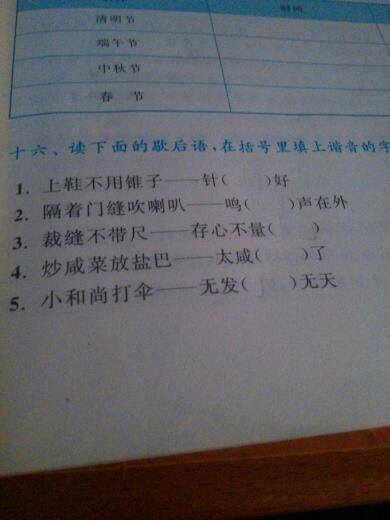 时间
清明节
端午节
中秋节
春 节
十六、读下面的歇后语,在括号里填上谐音的字
1. 上鞋不用锥子——针( )好
2. 隔着门缝吹喇叭——鸣( )声在外
3. 裁缝不带尺——存心不量( )
4. 炒咸菜放盐巴——太咸( )了
5. 小和尚打伞——无发( )无天